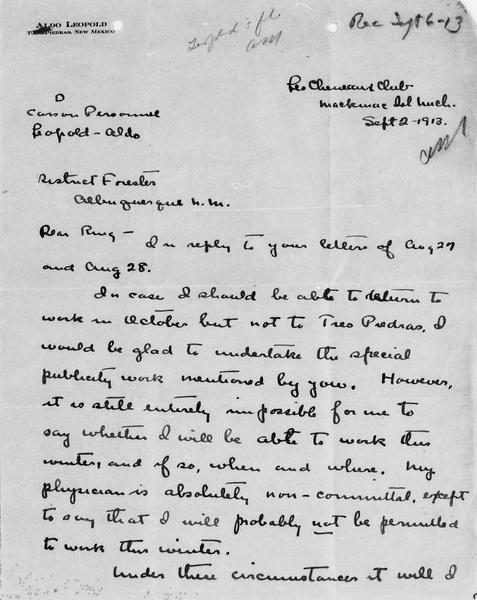 ALDO LEOPOLD
TRES PIEDRAS, NEW MEXICO
Leopold's fl
Rec Sept 6-13
Les Cheneaux Club
Mackinac Isl Mich.
Sept 2-1913.
D
Carson Personnel
Leopold-Aldo
District Forester
Albuquerque N.M.
Dear Ring - In reply to your letters of Aug 27
and Aug 28.
In case I should be able to return to
work in October but not to Tres Piedras, I
would be glad to undertake the special
publicity work mentioned by you. However,
it is still entirely impossible for me to
say whether I will be able to work this
winter, and if so, when and where. My
physician is absolutely non-committal, except
to say that I will probably not be permitted
to work this winter.
Under these circumstances it will I